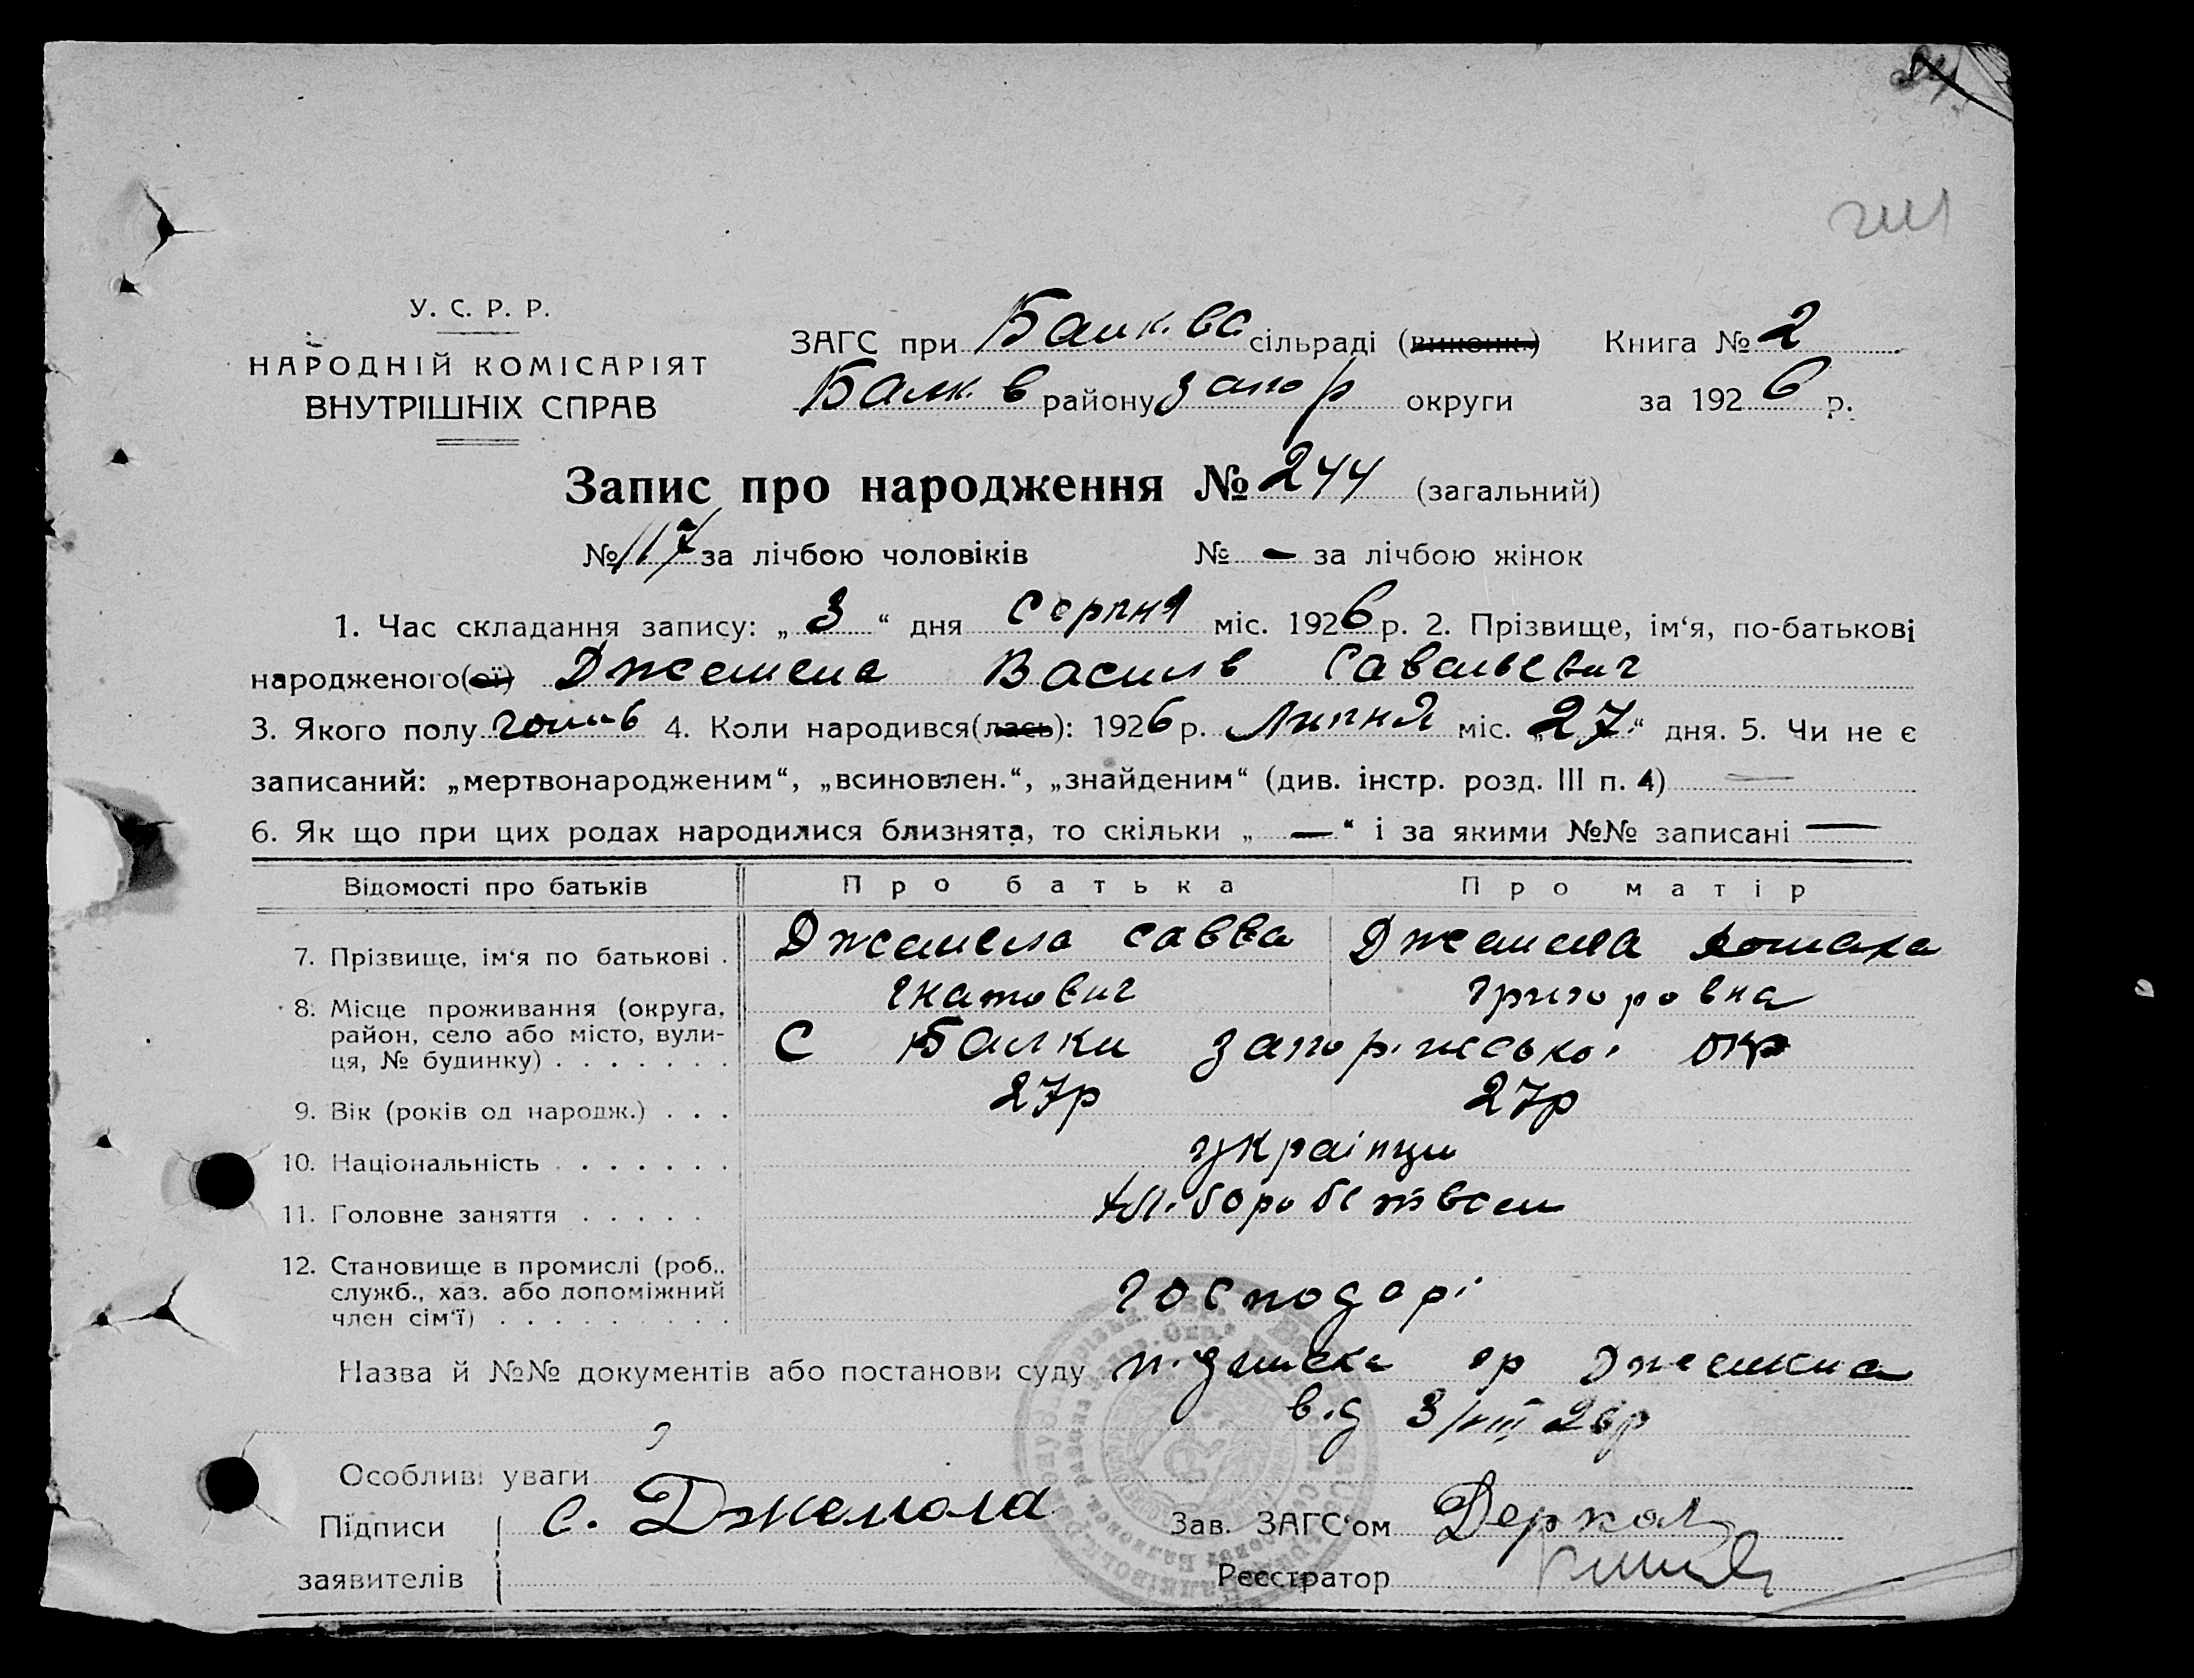 У. С. Р. Р.
НАРОДНІЙ КОМІСАРІЯТ
ВНУТРІШНІХ СПРАВ
ЗАГС при Балк. ва сільраді (виконк.) Книга № 2
Балк. в району Запор округи за 1926 р.
Запис про народження № 244 (загальний)
№ 117 за лічбою чоловіків № – за лічбою жінок
1. Час складання запису: „3“ дня Серпня міс. 1926 р. 2. Прізвище, ім‘я, по-батькові
народженого(ої) Джемела Василь Савельевич
3. Якого полу чолов 4. Коли народився(лась): 1926 р. Липня міс. „27“ дня. 5. Чи не є
записаний: „мертвонародженим“, „всиновлен.“, „знайденим“ (див. інстр. розд. III п. 4) —
6. Як що при цих родах народилися близнята, то скільки „—“ і за якими №№ записані —
Відомості про батьків Про батька Про матір
7. Прізвище, ім‘я по батькові . Джемела Савва Джемела
Гнатович Григоровна
8. Місце проживання (округа, район, село або місто, вулиця, № будинку) . . . . . . . С Балки Запоріжської окр
9. Вік (років од народж.) . . . 27р 27р
10. Національність . . . . . . . українци
11. Головне заняття . . . . . хліборобством
12. Становище в промислі (роб., служб., хаз. або допоміжний член сім‘ї) . . . . . . . . . господарі
Назва й №№ документів або постанови суду підписка гр Джемели
від 3/VIII 26р
Особливі уваги
Підписи заявителів С. Джемела
Зав. ЗАГС‘ом
Реєстратор